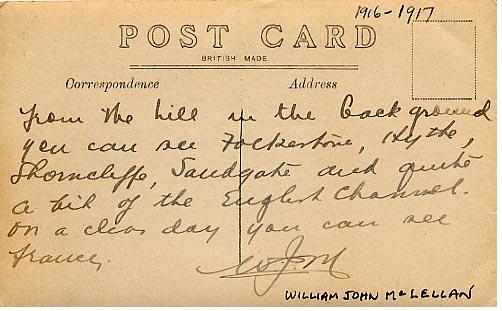 1916-1917
POST CARD
BRITISH MADE
Correspondence Address
from the hill in the background
you can see Folkestone, Hythe,
Shorncliffe, Sandgate and quite
a bit of the English Channel.
on a clear day you can see
France.
W.J.M
WILLIAM JOHN McLELLAN